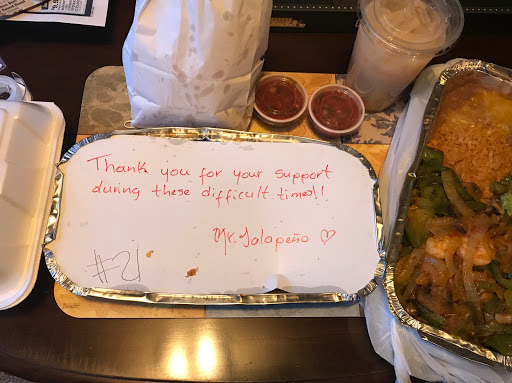 Thank you for your support
during these difficult times!!
Mr. Jalapeño ♡
#21